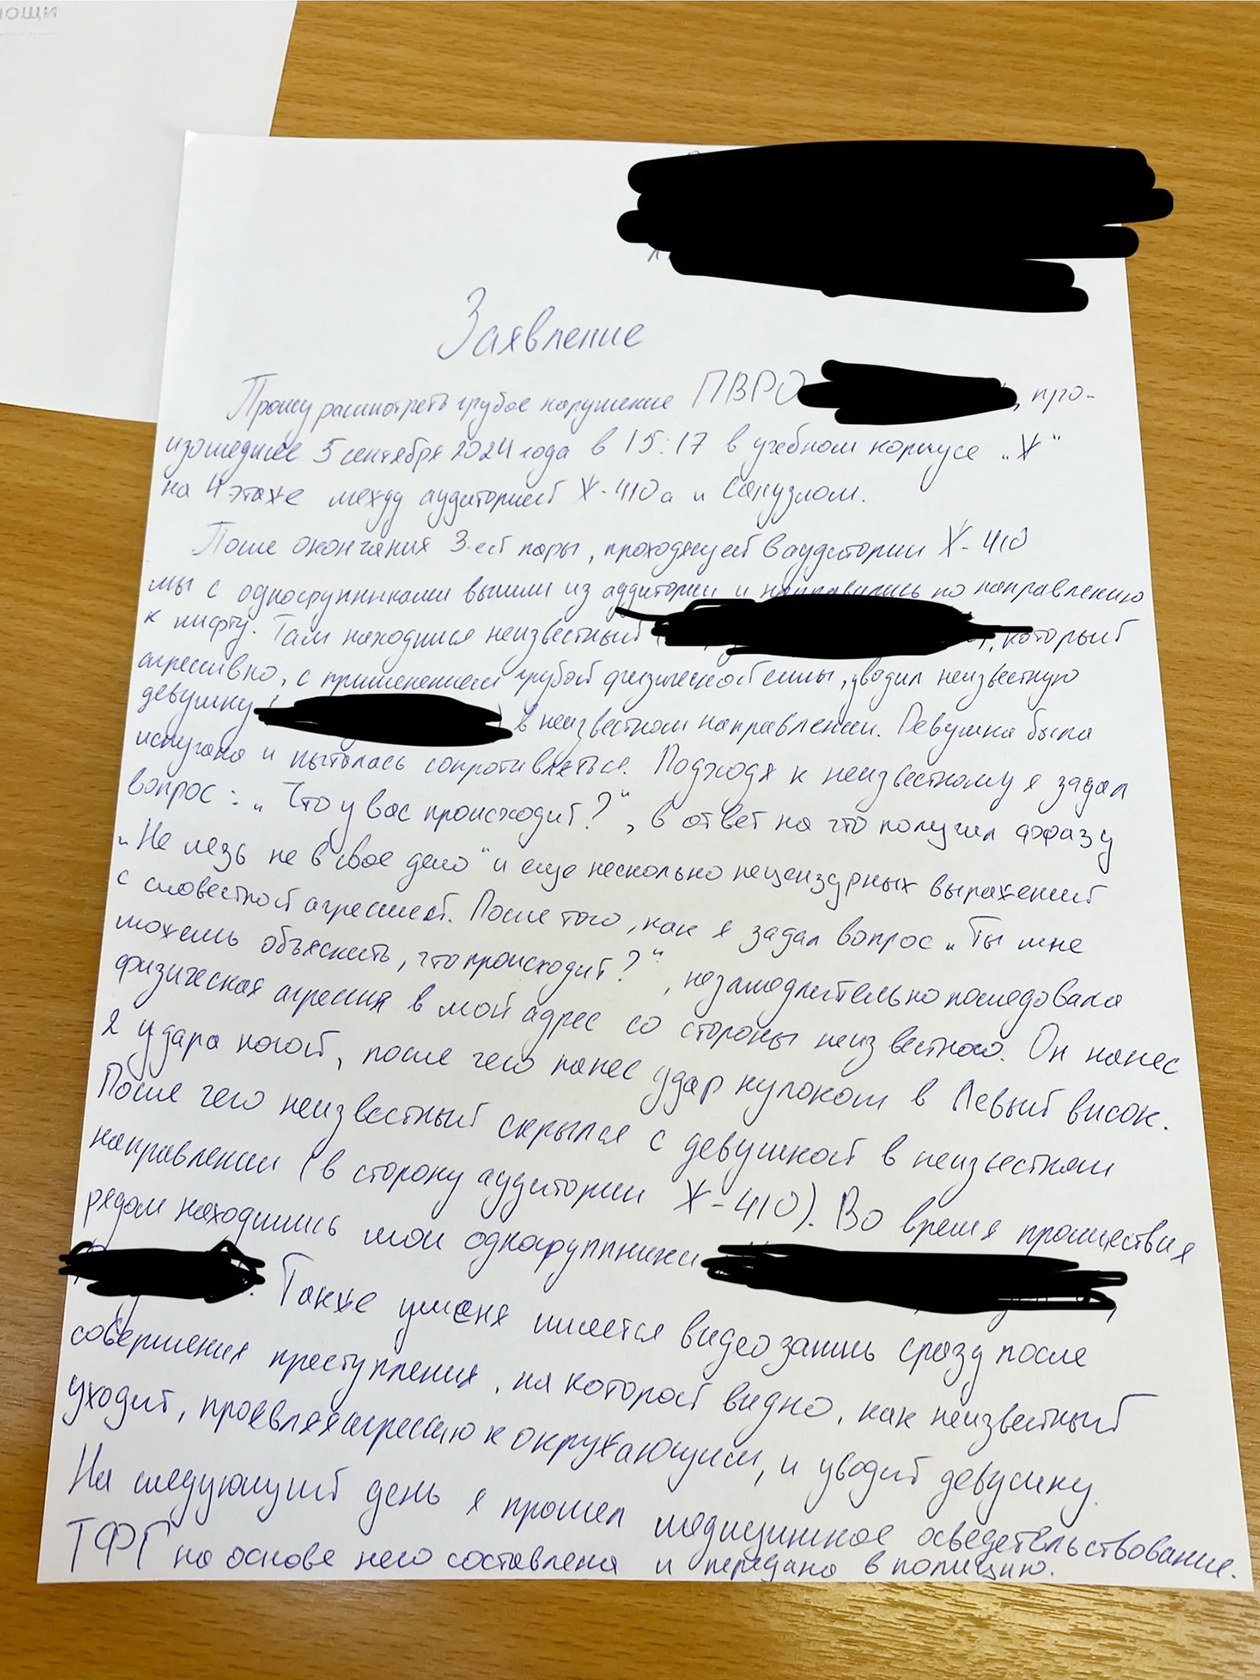 ющи
Заявление
Прошу рассмотреть грубое нарушение ПВРО , про-
изошедшее 5 сентября 2024 года в 15:17 в учебном корпусе „Х“
на 4 этаже между аудиторией Х-410а и Санузлом.
После окончания 3-ей пары, проходящей в аудитории Х-410
мы с одногруппниками вышли из аудитории и направились по направлению
к лифту. Там находился неизвестный , который
агрессивно, с применением грубой физической силы, уводил неизвестную
девушку в неизвестном направлении. Девушка была
испугана и пыталась сопротивляться. Подходя к неизвестному я задал
вопрос: „Что у вас происходит?“, в ответ на что получил фразу
„Не лезь не в свое дело“ и еще несколько нецензурных выражений
с словестной агрессией. После того, как я задал вопрос „Ты мне
можешь объяснить, что происходит?“, незамедлительно последовала
физическая агрессия в мой адрес со стороны неизвестного. Он нанес
2 удара ногой, после чего нанес удар кулаком в левый висок.
После чего неизвестный скрылся с девушкой в неизвестном
направлении (в сторону аудитории Х-410). Во время происшествия
рядом находились мои одногруппники
. Также у меня имеется видеозапись сразу после
совершения преступления, на которой видно, как неизвестный
уходит, проявляя агрессию к окружающим, и уводит девушку.
На следующий день я прошел медицинское осведетельствование.
ТФГ на основе него составлена и передана в полицию.